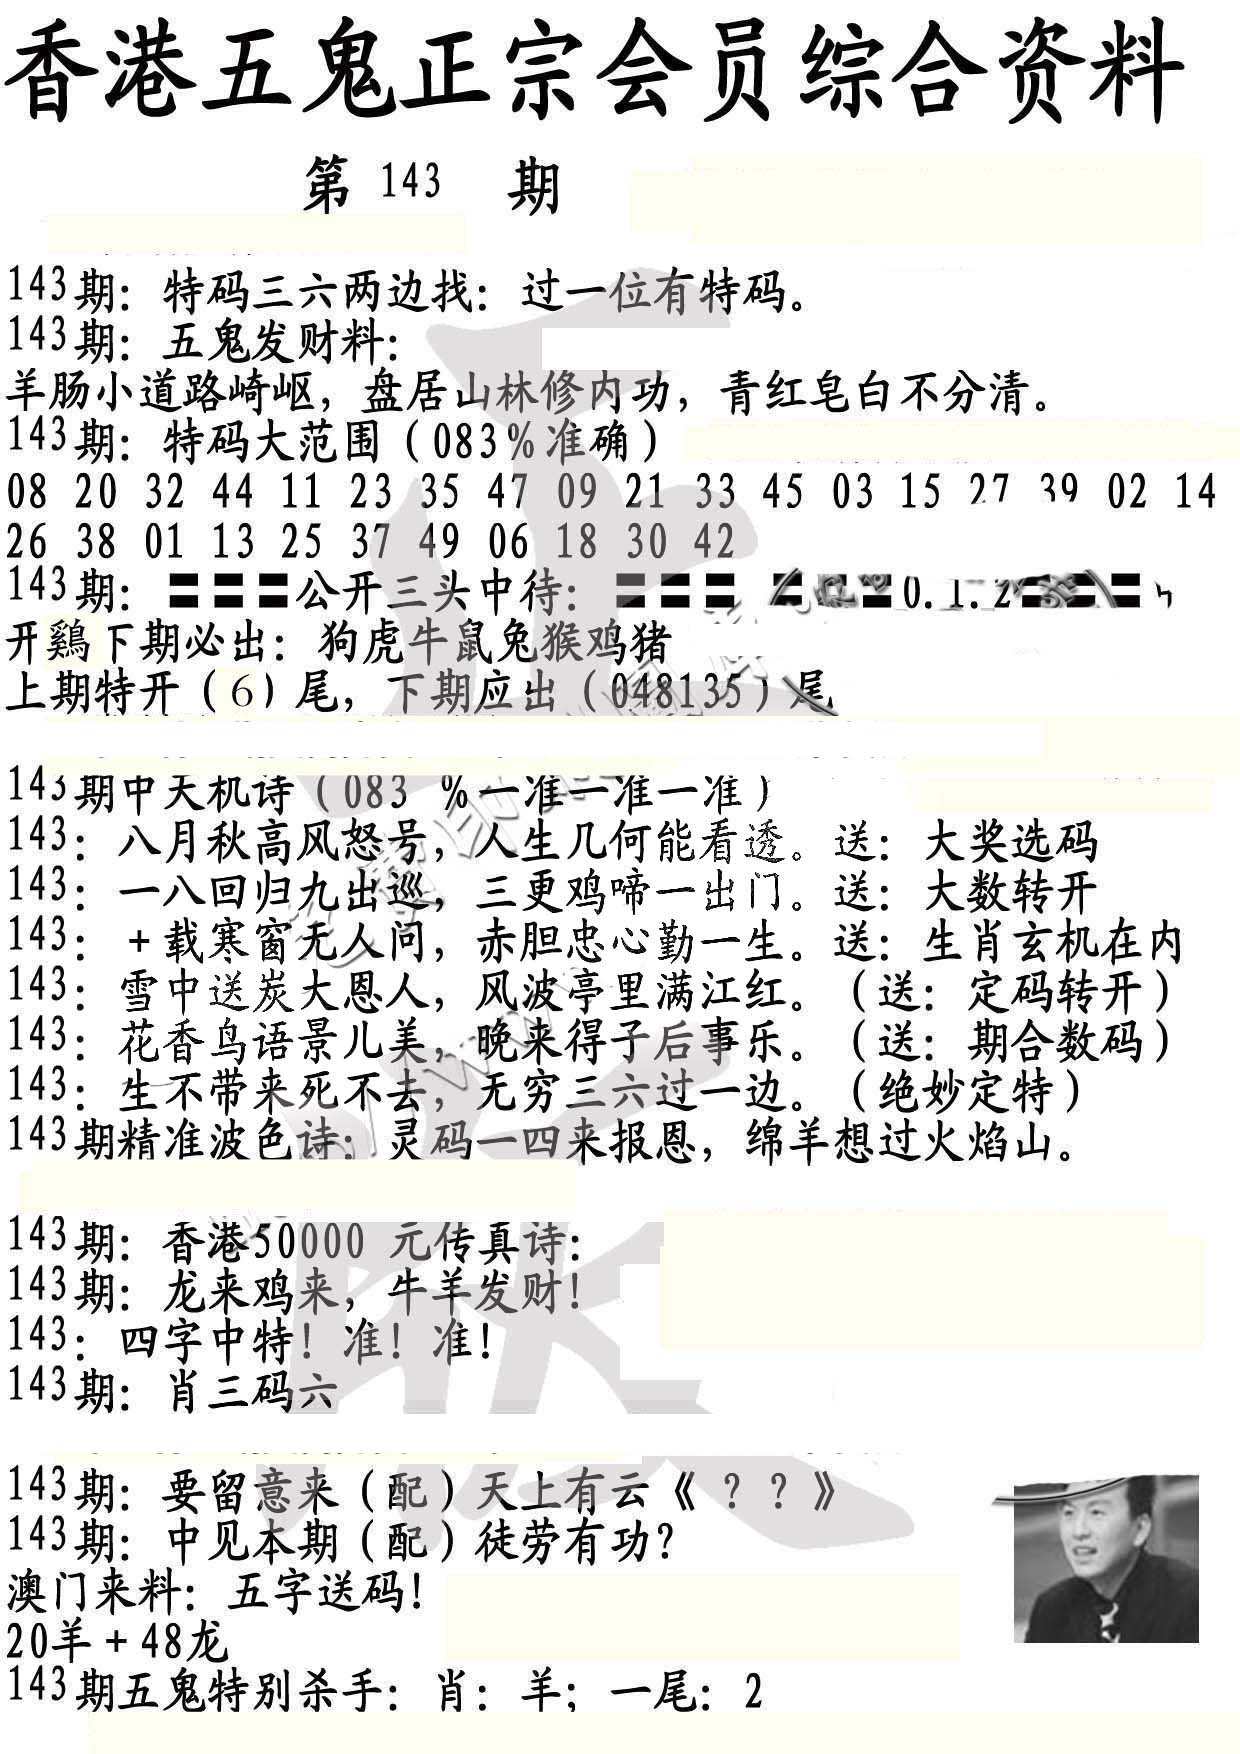 香港五鬼正宗会员综合资料
第 143 期
143期：特码三六两边找：过一位有特码。
143期：五鬼发财料：
羊肠小道路崎岖，盘居山林修内功，青红皂白不分清。
143期：特码大范围（083%准确）
08 20 32 44 11 23 35 47 09 21 33 45 03 15 27 39 02 14
26 38 01 13 25 37 49 06 18 30 42
143期：〓〓〓公开三头中待：〓〓〓 〓〓〓0.1.2〓〓〓
开鷄下期必出：狗虎牛鼠兔猴鸡猪
上期特开（6）尾，下期应出（048135）尾
143期中天机诗（083 %一准一准一准）
143：八月秋高风怒号，人生几何能看透。送：大奖选码
143：一八回归九出巡，三更鸡啼一出门。送：大数转开
143：+载寒窗无人问，赤胆忠心勤一生。送：生肖玄机在内
143：雪中送炭大恩人，风波亭里满江红。（送：定码转开）
143：花香鸟语景儿美，晚来得子后事乐。（送：期合数码）
143：生不带来死不去，无穷三六过一边。（绝妙定特）
143期精准波色诗：灵码一四来报恩，绵羊想过火焰山。
143期：香港50000 元传真诗：
143期：龙来鸡来，牛羊发财！
143：四字中特！准！准！
143期：肖三码六
143期：要留意来（配）天上有云《？？》
143期：中见本期（配）徒劳有功？
澳门来料：五字送码！
20羊+48龙
143期五鬼特别杀手：肖：羊；一尾：2